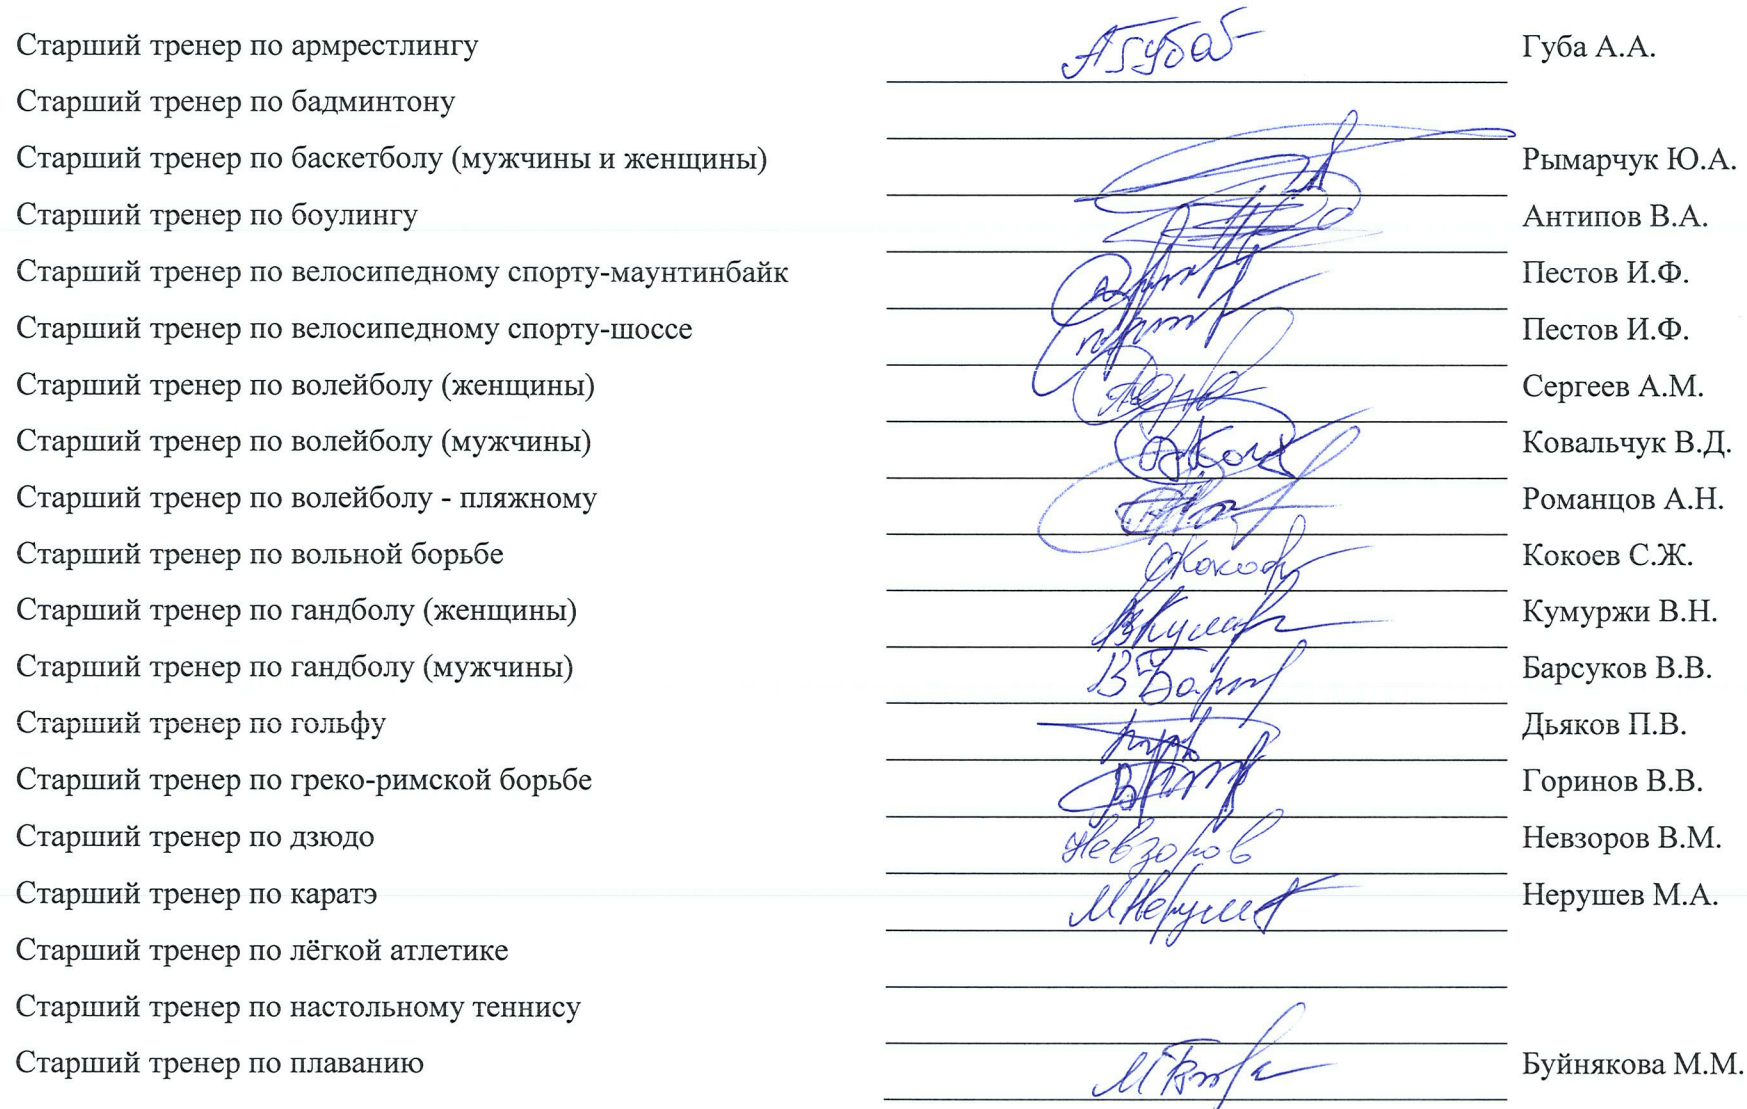 Старший тренер по армрестлингу Губа А.А.
Старший тренер по бадминтону
Старший тренер по баскетболу (мужчины и женщины) Рымарчук Ю.А.
Старший тренер по боулингу Антипов В.А.
Старший тренер по велосипедному спорту-маунтинбайк Пестов И.Ф.
Старший тренер по велосипедному спорту-шоссе Пестов И.Ф.
Старший тренер по волейболу (женщины) Сергеев А.М.
Старший тренер по волейболу (мужчины) Ковальчук В.Д.
Старший тренер по волейболу - пляжному Романцов А.Н.
Старший тренер по вольной борьбе Кокоев С.Ж.
Старший тренер по гандболу (женщины) Кумуржи В.Н.
Старший тренер по гандболу (мужчины) Барсуков В.В.
Старший тренер по гольфу Дьяков П.В.
Старший тренер по греко-римской борьбе Горинов В.В.
Старший тренер по дзюдо Невзоров Невзоров В.М.
Старший тренер по каратэ Нерушев М.А.
Старший тренер по лёгкой атлетике
Старший тренер по настольному теннису
Старший тренер по плаванию Буйнякова М.М.